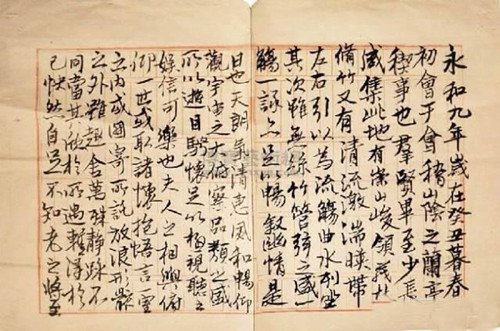 永和九年歲在癸丑暮春
初會于會稽山陰之蘭亭
稧事也羣賢畢至少長
咸集此地有崇山峻領茂林
脩竹又有清流激湍暎帶
左右引以為流觴曲水列坐
其次雖無絲竹管弦之盛一
觴一詠亦足以暢敘幽情是
日也天朗氣清惠風和暢仰
觀宇宙之大俯察品類之盛
所以遊目騁懷足以極視聽之
娛信可樂也夫人之相與俯
仰一世或取諸懷抱悟言一室
之內或因寄所託放浪形骸
之外雖趣舍萬殊靜躁不
同當其欣於所遇蹔得於
己怏然自足不知老之將至